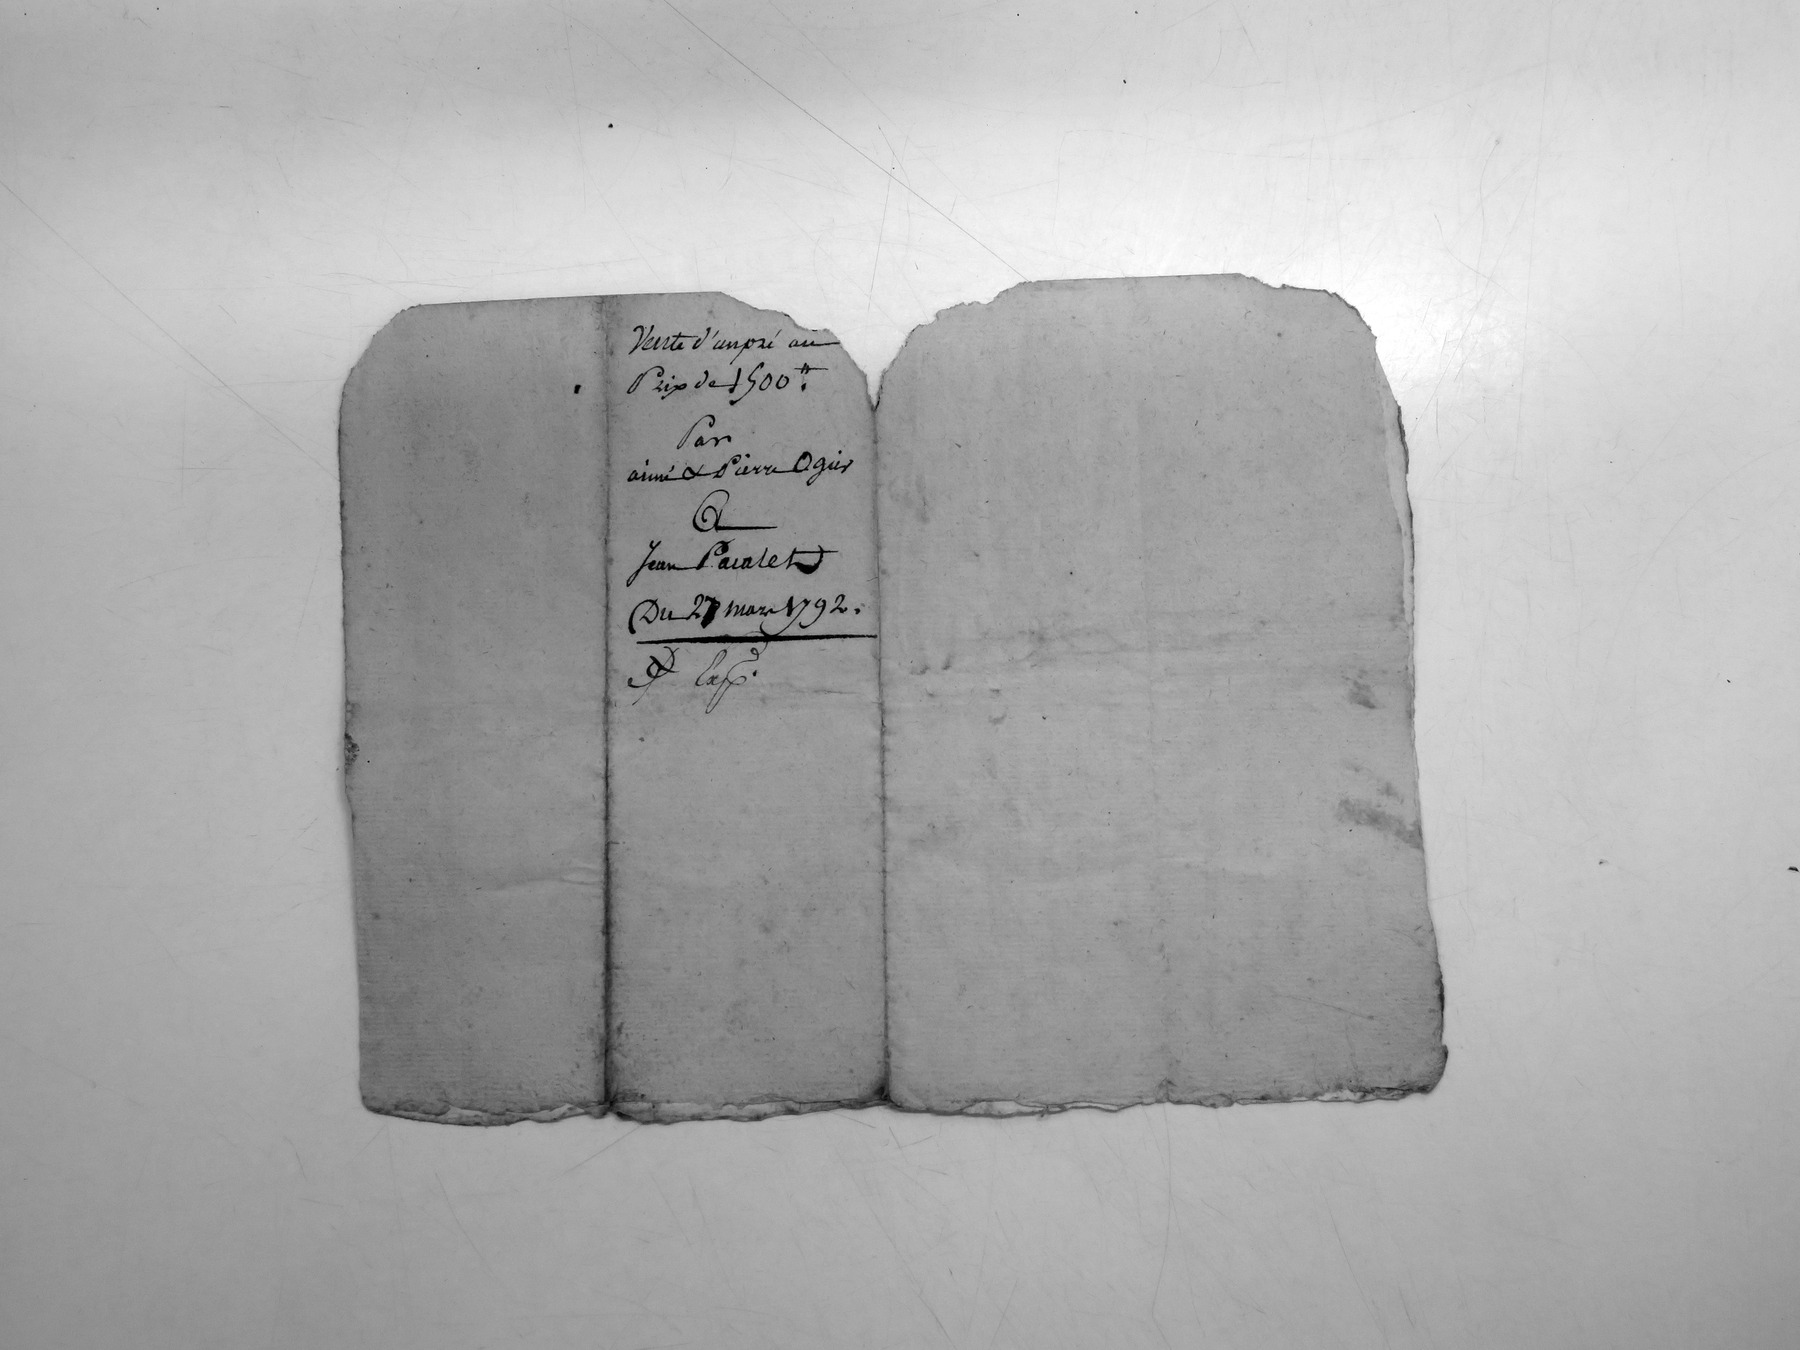 Vente d'un pré au
Prix de 1500 ₶.
Par
aimé & Pierre Ogier
A
Jean Pacalet
Du 27 mars 1792.